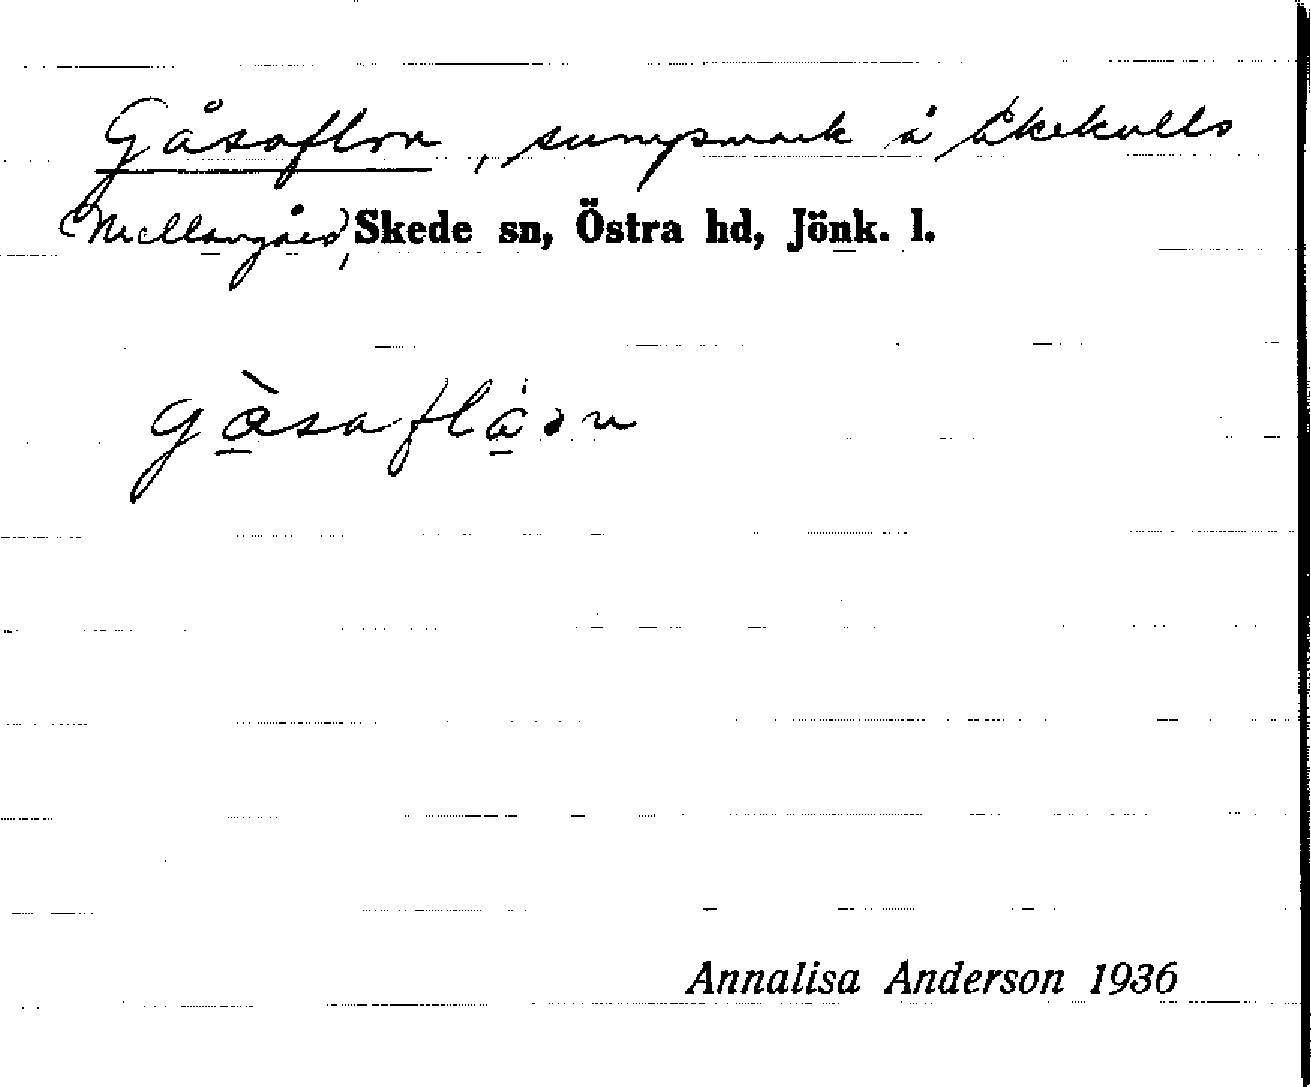 Gåsaflon, sumpmark å Åkekulls
(Mellangård), Skede sn, Östra hd, Jönk. l.
gåsaflåən
Annalisa Anderson 1936